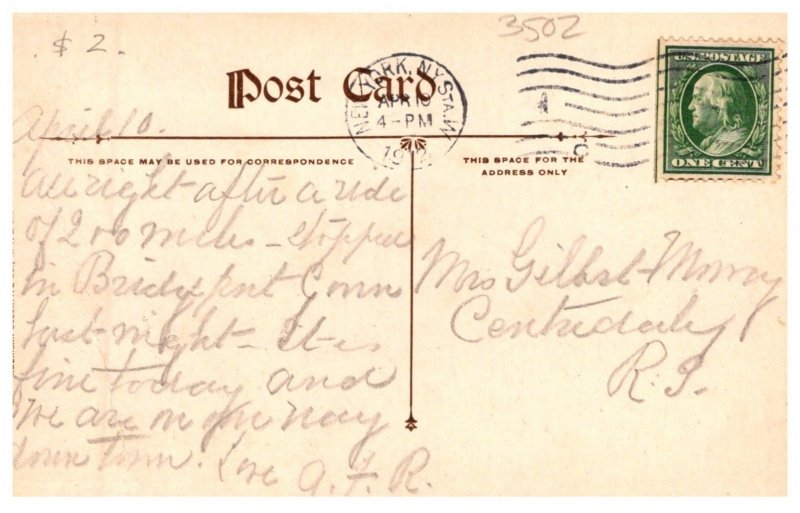 3502
$ 2.
Post Card
NEW YORK, N.Y. STA. W
APR 10
4-PM
U.S. POSTAGE
ONE CENT
THIS SPACE MAY BE USED FOR CORRESPONDENCE
THIS SPACE FOR THE
ADDRESS ONLY
April 10.
All right after a ride
of 200 miles - stopped
in Bridgeport Conn
last night - It is
fine today and
we are on our way
down town. Love A. F. R.
Mrs Gilbert Mowry
Centredale
R. I.